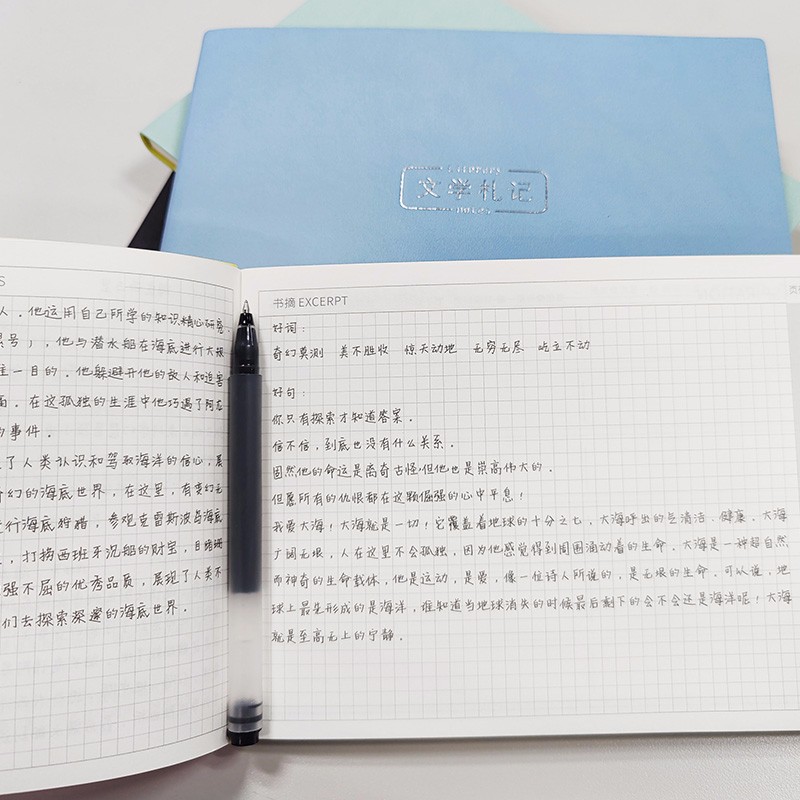 Literary
文学札记
NOTES
S
人．他运用自己所学的知识精心研究．
号），他与潜水船在海底进行大规
一目的．他躲避开他的敌人和迫害
．在这孤独的生涯中他巧遇了阿龙
的事件．
了人类认识和驾驭海洋的信心，展
幻的海底世界，在这里，有变幻无
行海底狩猎，参观克雷斯波岛海底
，打捞西班牙沉船的财宝，目睹珊
强不屈的优秀品质，展现了人类不
们去探索深邃的海底世界．
书摘 EXCERPT
页
好词：
奇幻莫测 美不胜收 惊天动地 无穷无尽 屹立不动
好句：
你只有探索才知道答案．
信不信，到底也没有什么关系．
固然他的命运是离奇古怪但他也是崇高伟大的．
但愿所有的仇恨都在这颗倔强的心中平息！
我爱大海！大海就是一切！它覆盖着地球的十分之七，大海呼出的气清洁、健康，大海
广阔无垠，人在这里不会孤独，因为他感觉得到周围涌动着的生命，大海是一种超自然
而神奇的生命载体，他是运动，是爱，像一位诗人所说的，是无垠的生命．可以说，地
球上最先形成的是海洋，谁知道当地球消失的时候最后剩下的会不会还是海洋呢！大海
就是至高无上的宁静．